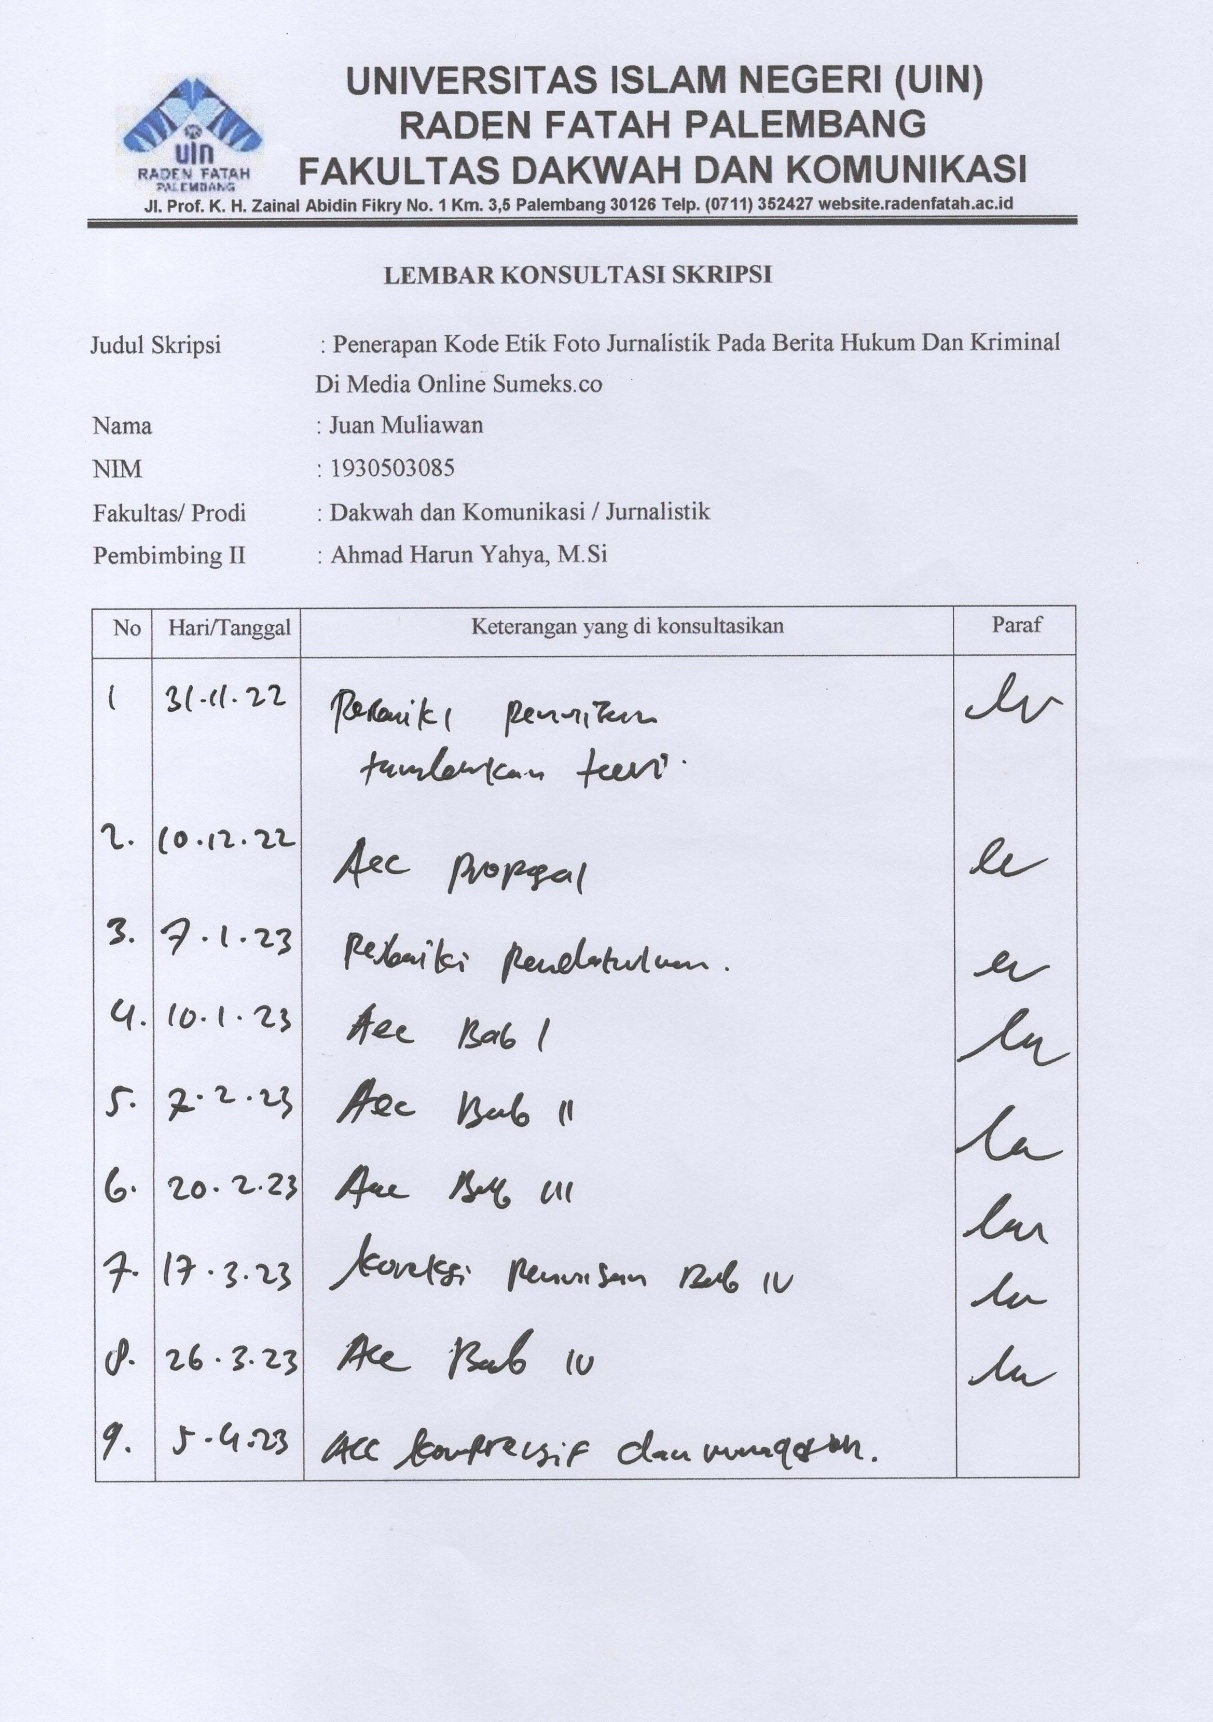 UNIVERSITAS ISLAM NEGERI (UIN)
RADEN FATAH PALEMBANG
FAKULTAS DAKWAH DAN KOMUNIKASI
uin
RADEN FATAH
PALEMBANG
Jl. Prof. K. H. Zainal Abidin Fikry No. 1 Km. 3,5 Palembang 30126 Telp. (0711) 352427 website.radenfatah.ac.id
LEMBAR KONSULTASI SKRIPSI
Judul Skripsi : Penerapan Kode Etik Foto Jurnalistik Pada Berita Hukum Dan Kriminal
Di Media Online Sumeks.co
Nama : Juan Muliawan
NIM : 1930503085
Fakultas/ Prodi : Dakwah dan Komunikasi / Jurnalistik
Pembimbing II : Ahmad Harun Yahya, M.Si
No Hari/Tanggal Keterangan yang di konsultasikan Paraf
1 31.11.22 Perbaiki
tambahkan teori.
2. 10.12.22 Acc Proposal
3. 7.1.23 Perbaiki Pendahuluan.
4. 10.1.23 Acc Bab I
5. 7.2.23 Acc Bab II
6. 20.2.23 Acc Bab III
7. 17.3.23 koreksi Penulisan Bab IV
8. 26.3.23 Acc Bab IV
9. 5.4.23 Acc komprensif dan munaqosah.